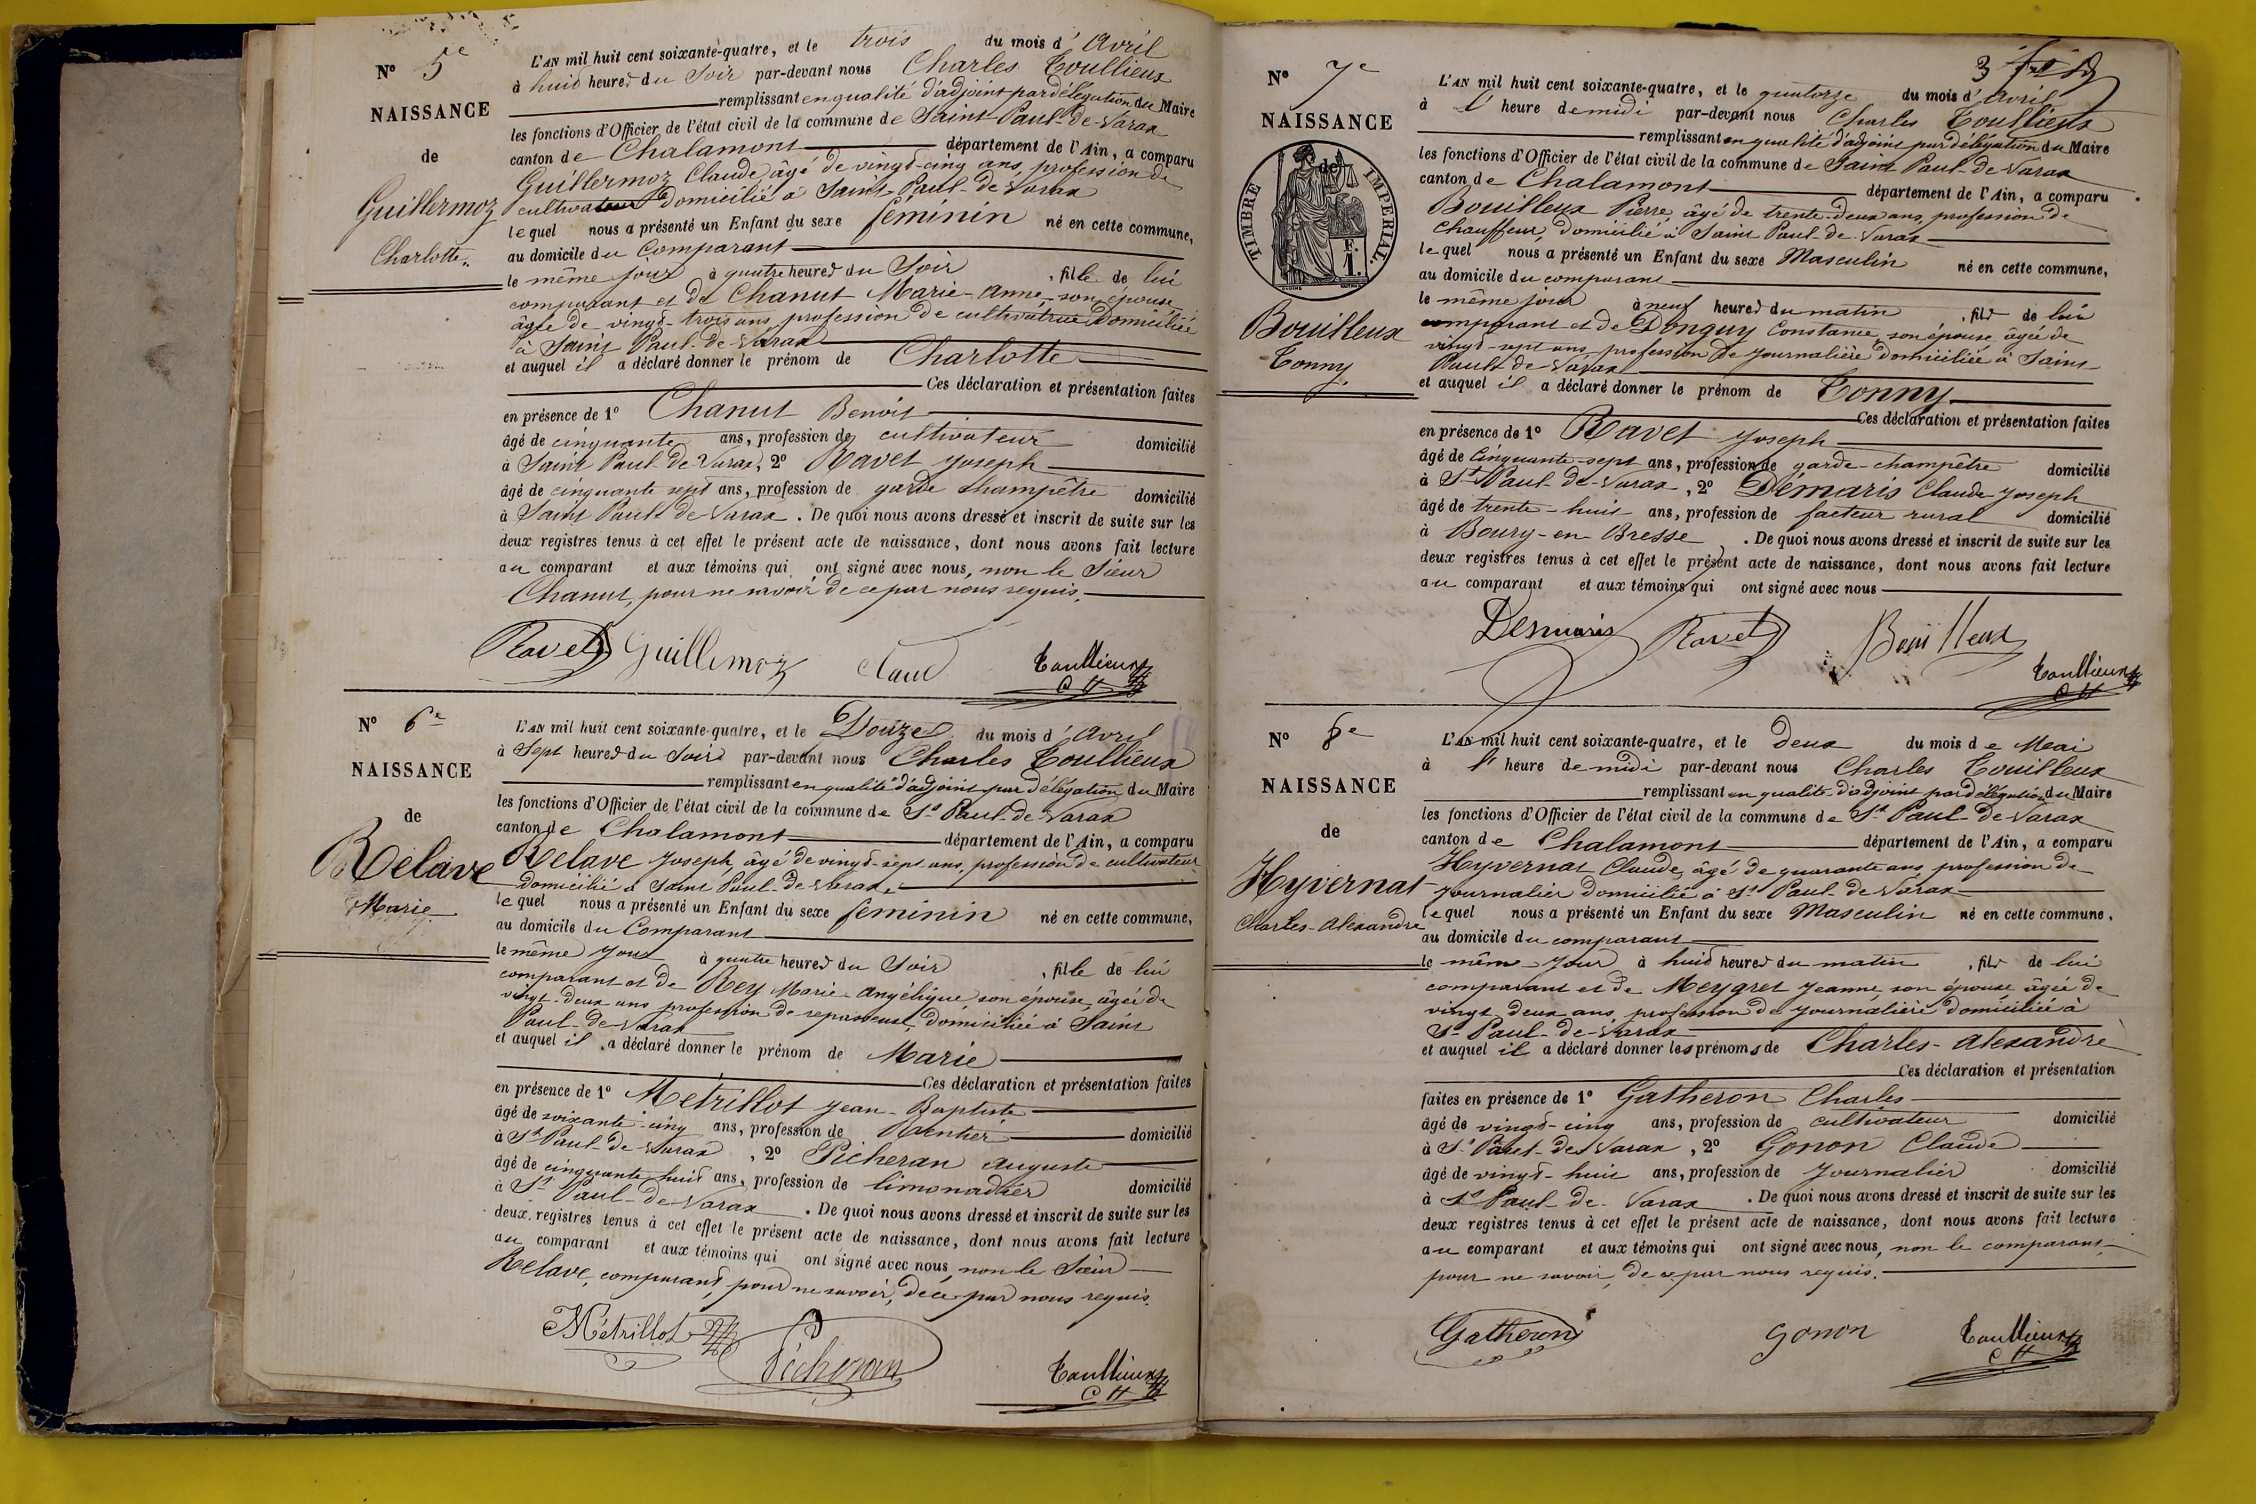 N° 5e
NAISSANCE
de
Guillermoz
Charlotte.
L'AN mil huit cent soixante-quatre, et le trois du mois d'Avril
à huit heures du Soir par-devant nous Charles Toullieux
remplissant en qualité d'adjoint par délégation du Maire
les fonctions d'Officier de l'état civil de la commune de Saint-Paul-de-Varax
canton de Chalamont département de l'Ain, a comparu
Guillermoz Claude, âgé de vingt-cinq ans, profession de
cultivateur domicilié à Saint-Paul-de-Varax
lequel nous a présenté un Enfant du sexe féminin né en cette commune,
au domicile du Comparant
le même jour à quatre heures du Soir, fille de lui
comparant et de Chanut Marie-Anne, son épouse
âgée de vingt-trois ans, profession de cultivatrice domiciliée
à Saint Paul-de-Varax
et auquel il a déclaré donner le prénom de Charlotte
Ces déclaration et présentation faites
en présence de 1° Chanut Benoit
âgé de cinquante ans, profession de cultivateur domicilié
à Saint Paul-de-Varax, 2° Ravet Joseph
âgé de cinquante sept ans, profession de garde champêtre domicilié
à Saint Paul-de-Varax. De quoi nous avons dressé et inscrit de suite sur les
deux registres tenus à cet effet le présent acte de naissance, dont nous avons fait lecture
au comparant et aux témoins qui ont signé avec nous, non le Sieur
Chanut, pour ne savoir de ce par nous requis.
Ravet Guillermoz Claud Toullieux
CH
N° 6e
NAISSANCE
de
Relave
Marie
L'AN mil huit cent soixante-quatre, et le Douze du mois d'Avril
à Sept heures du Soir par-devant nous Charles Toullieux
remplissant en qualité d'adjoint par délégation du Maire
les fonctions d'Officier de l'état civil de la commune de St Paul-de-Varax
canton de Chalamont département de l'Ain, a comparu
Relave Joseph, âgé de vingt-sept ans, profession de cultivateur
domicilié à Saint Paul-de-Varax,
lequel nous a présenté un Enfant du sexe féminin né en cette commune,
au domicile du Comparant
le même jour à quatre heures du Soir, fille de lui
comparant et de Rey Marie-Angélique son épouse, âgée de
vingt-deux ans profession de repasseuse, domiciliée à Saint
Paul-de-Varax
et auquel il a déclaré donner le prénom de Marie
Ces déclaration et présentation faites
en présence de 1° Metrillot Jean-Baptiste
âgé de soixante-cinq ans, profession de Rentier domicilié
à St Paul-de-Varax, 2° Picheran Auguste
âgé de cinquante huit ans, profession de limonadier domicilié
à St Paul-de-Varax. De quoi nous avons dressé et inscrit de suite sur les
deux registres tenus à cet effet le présent acte de naissance, dont nous avons fait lecture
au comparant et aux témoins qui ont signé avec nous, non le Sieur
Relave, comparant, pour ne savoir, de ce par nous requis.
Métrillot Picheran Toullieux
CH
3
N° 7e
NAISSANCE
de
TIMBRE IMPERIAL.
F.
1.
Bouilleux
Tonny.
L'AN mil huit cent soixante-quatre, et le quatorze du mois d'Avril
à l'heure de midi par-devant nous Charles Toullieux
remplissant en qualité d'adjoint par délégation du Maire
les fonctions d'Officier de l'état civil de la commune de Saint Paul-de-Varax
canton de Chalamont département de l'Ain, a comparu
Bouilleux Pierre, âgé de trente-deux ans, profession de
chauffeur, domicilié à Saint Paul-de-Varax
lequel nous a présenté un Enfant du sexe Masculin né en cette commune,
au domicile du comparant
le même jour à neuf heures du matin, fils de lui
comparant et de Donguy Constance, son épouse, âgée de
vingt-sept ans, profession de journalière domiciliée à Saint-
Paul-de-Varax
et auquel il a déclaré donner le prénom de Tonny
Ces déclaration et présentation faites
en présence de 1° Ravet Joseph
âgé de Cinquante-sept ans, profession de garde-champêtre domicilié
à St Paul-de-Varax, 2° Démaris Claude Joseph
âgé de trente-huit ans, profession de facteur rural domicilié
à Bourg-en Bresse. De quoi nous avons dressé et inscrit de suite sur les
deux registres tenus à cet effet le présent acte de naissance, dont nous avons fait lecture
au comparant et aux témoins qui ont signé avec nous
Desmaris Ravet Bouilleux
Toullieux
CH
N° 8e
NAISSANCE
de
Hyvernat
Charles-Alexandre
L'AN mil huit cent soixante-quatre, et le deux du mois de Mai
à l'heure de midi par-devant nous Charles Touilleux
remplissant en qualité d'adjoint par délégation du Maire
les fonctions d'Officier de l'état civil de la commune de St Paul-de-Varax
canton de Chalamont département de l'Ain, a comparu
Hyvernat Claude, âgé de quarante ans, profession de
journalier domicilié à St Paul-de-Varax
lequel nous a présenté un Enfant du sexe Masculin né en cette commune,
au domicile du comparant
le même jour à huit heures du matin, fils de lui
comparant et de Meygret Jeanne, son épouse âgée de
vingt deux ans, profession de journalière domiciliée à
St Paul-de-Varax
et auquel il a déclaré donner les prénoms de Charles-Alexandre
Ces déclaration et présentation
faites en présence de 1° Gatheron Charles
âgé de vingt-cinq ans, profession de cultivateur domicilié
à St Paul-de-Varax, 2° Gonon Claude
âgé de vingt-huit ans, profession de journalier domicilié
à St Paul-de-Varax. De quoi nous avons dressé et inscrit de suite sur les
deux registres tenus à cet effet le présent acte de naissance, dont nous avons fait lecture
au comparant et aux témoins qui ont signé avec nous, non le comparant
pour ne savoir, de ce par nous requis.
Gatheron Gonon Toullieux
CH